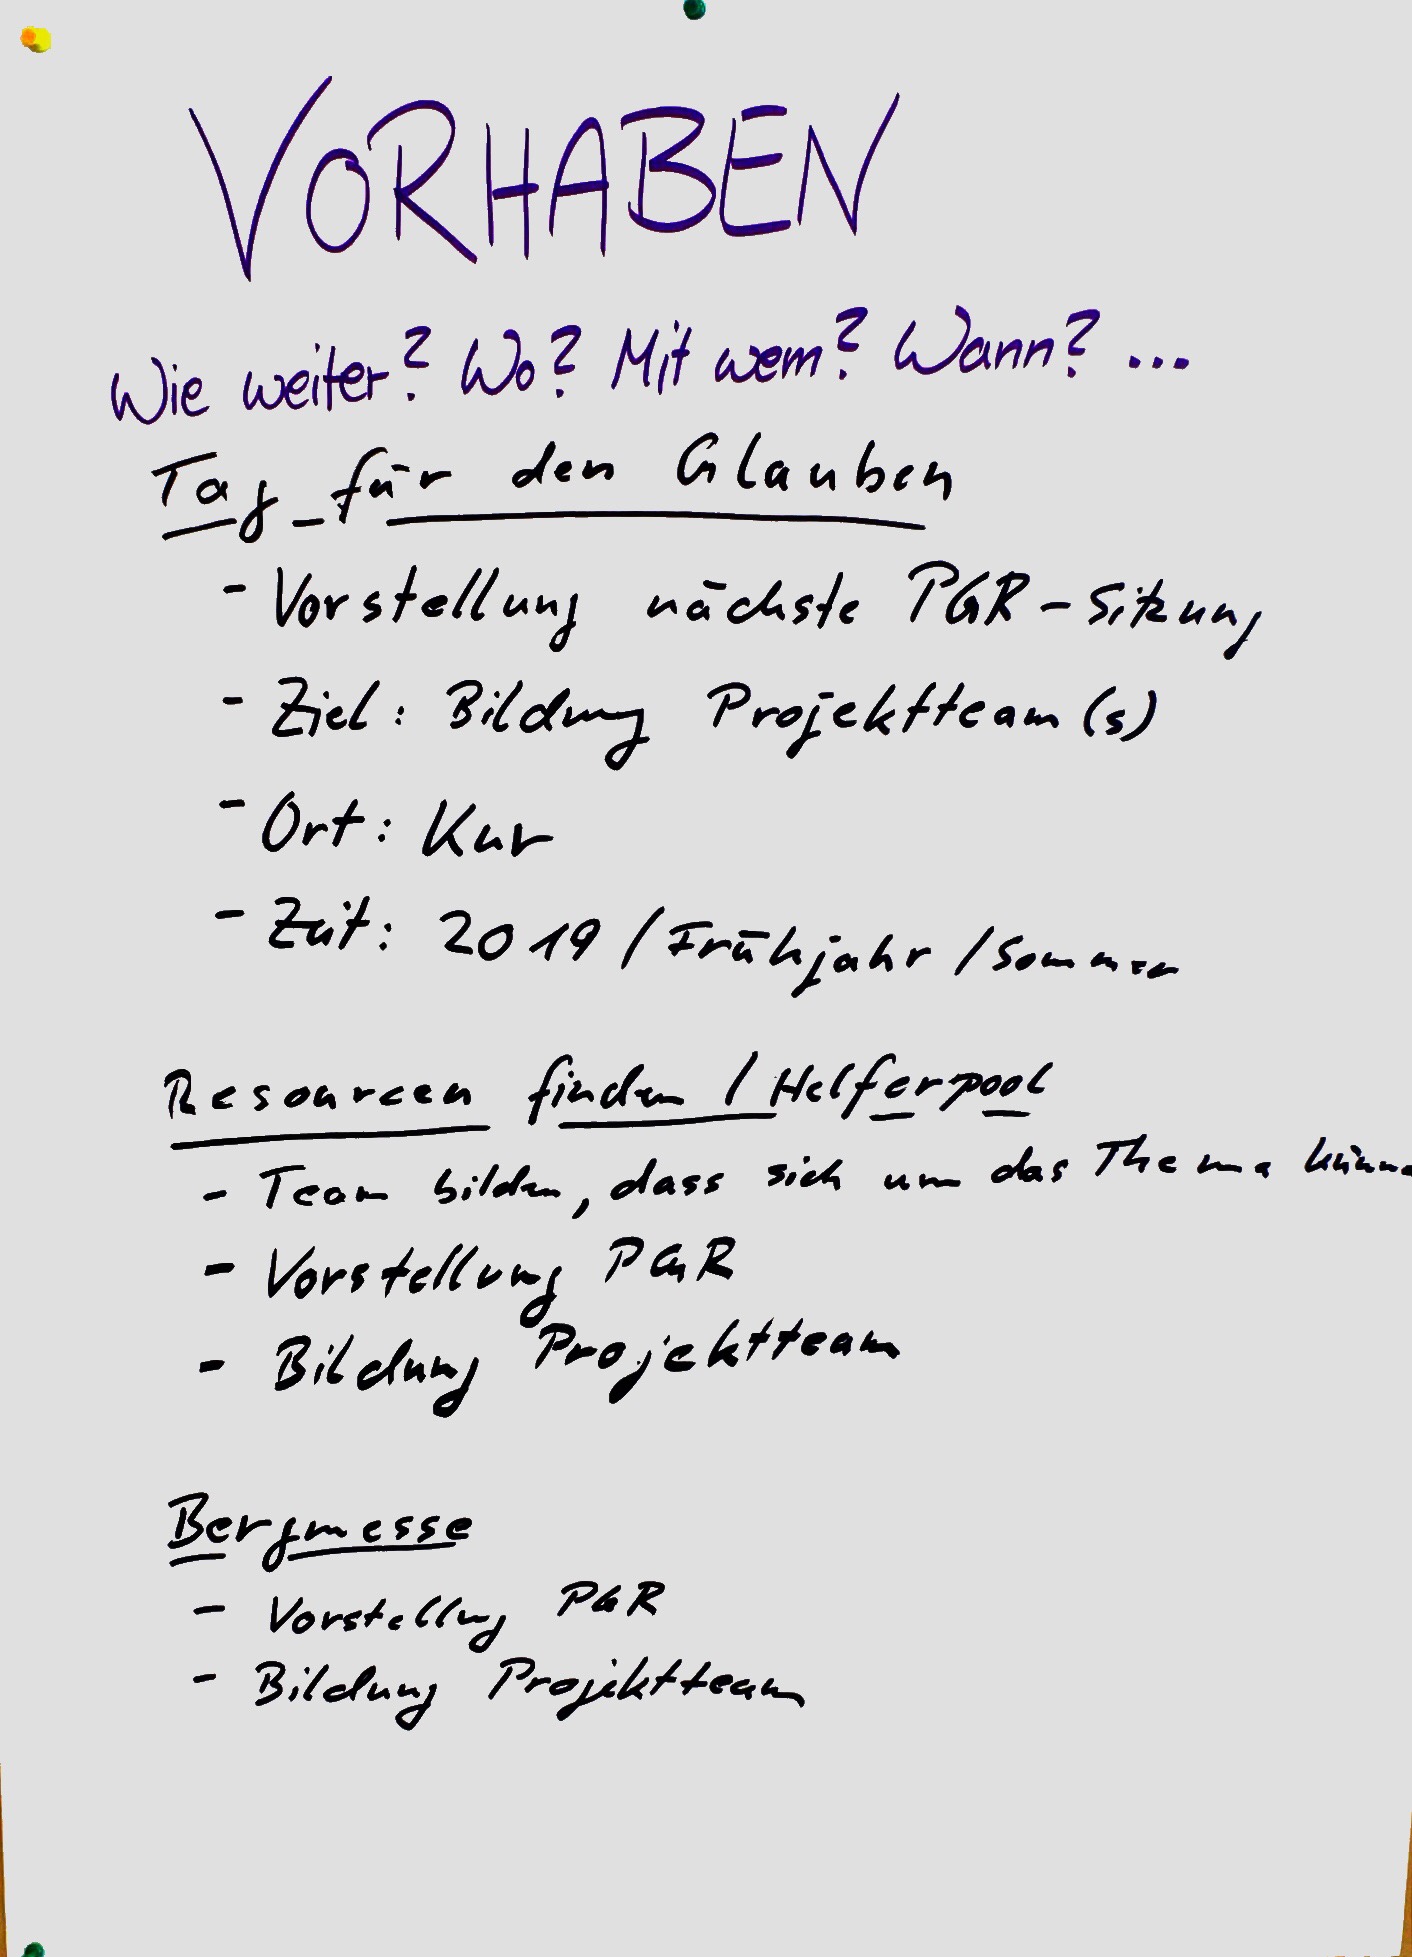 VORHABEN
Wie weiter? Wo? Mit wem? Wann? ...
Tag für den Glauben
- Vorstellung nächste PGR-Sitzung
- Ziel: Bildung Projektteam(s)
- Ort: Kur
- Zeit: 2019 / Frühjahr / Sommer
Resourcen finden / Helferpool
- Team bilden, dass sich um das Thema
- Vorstellung PGR
- Bildung Projektteam
Bergmesse
- Vorstellung PGR
- Bildung Projektteam